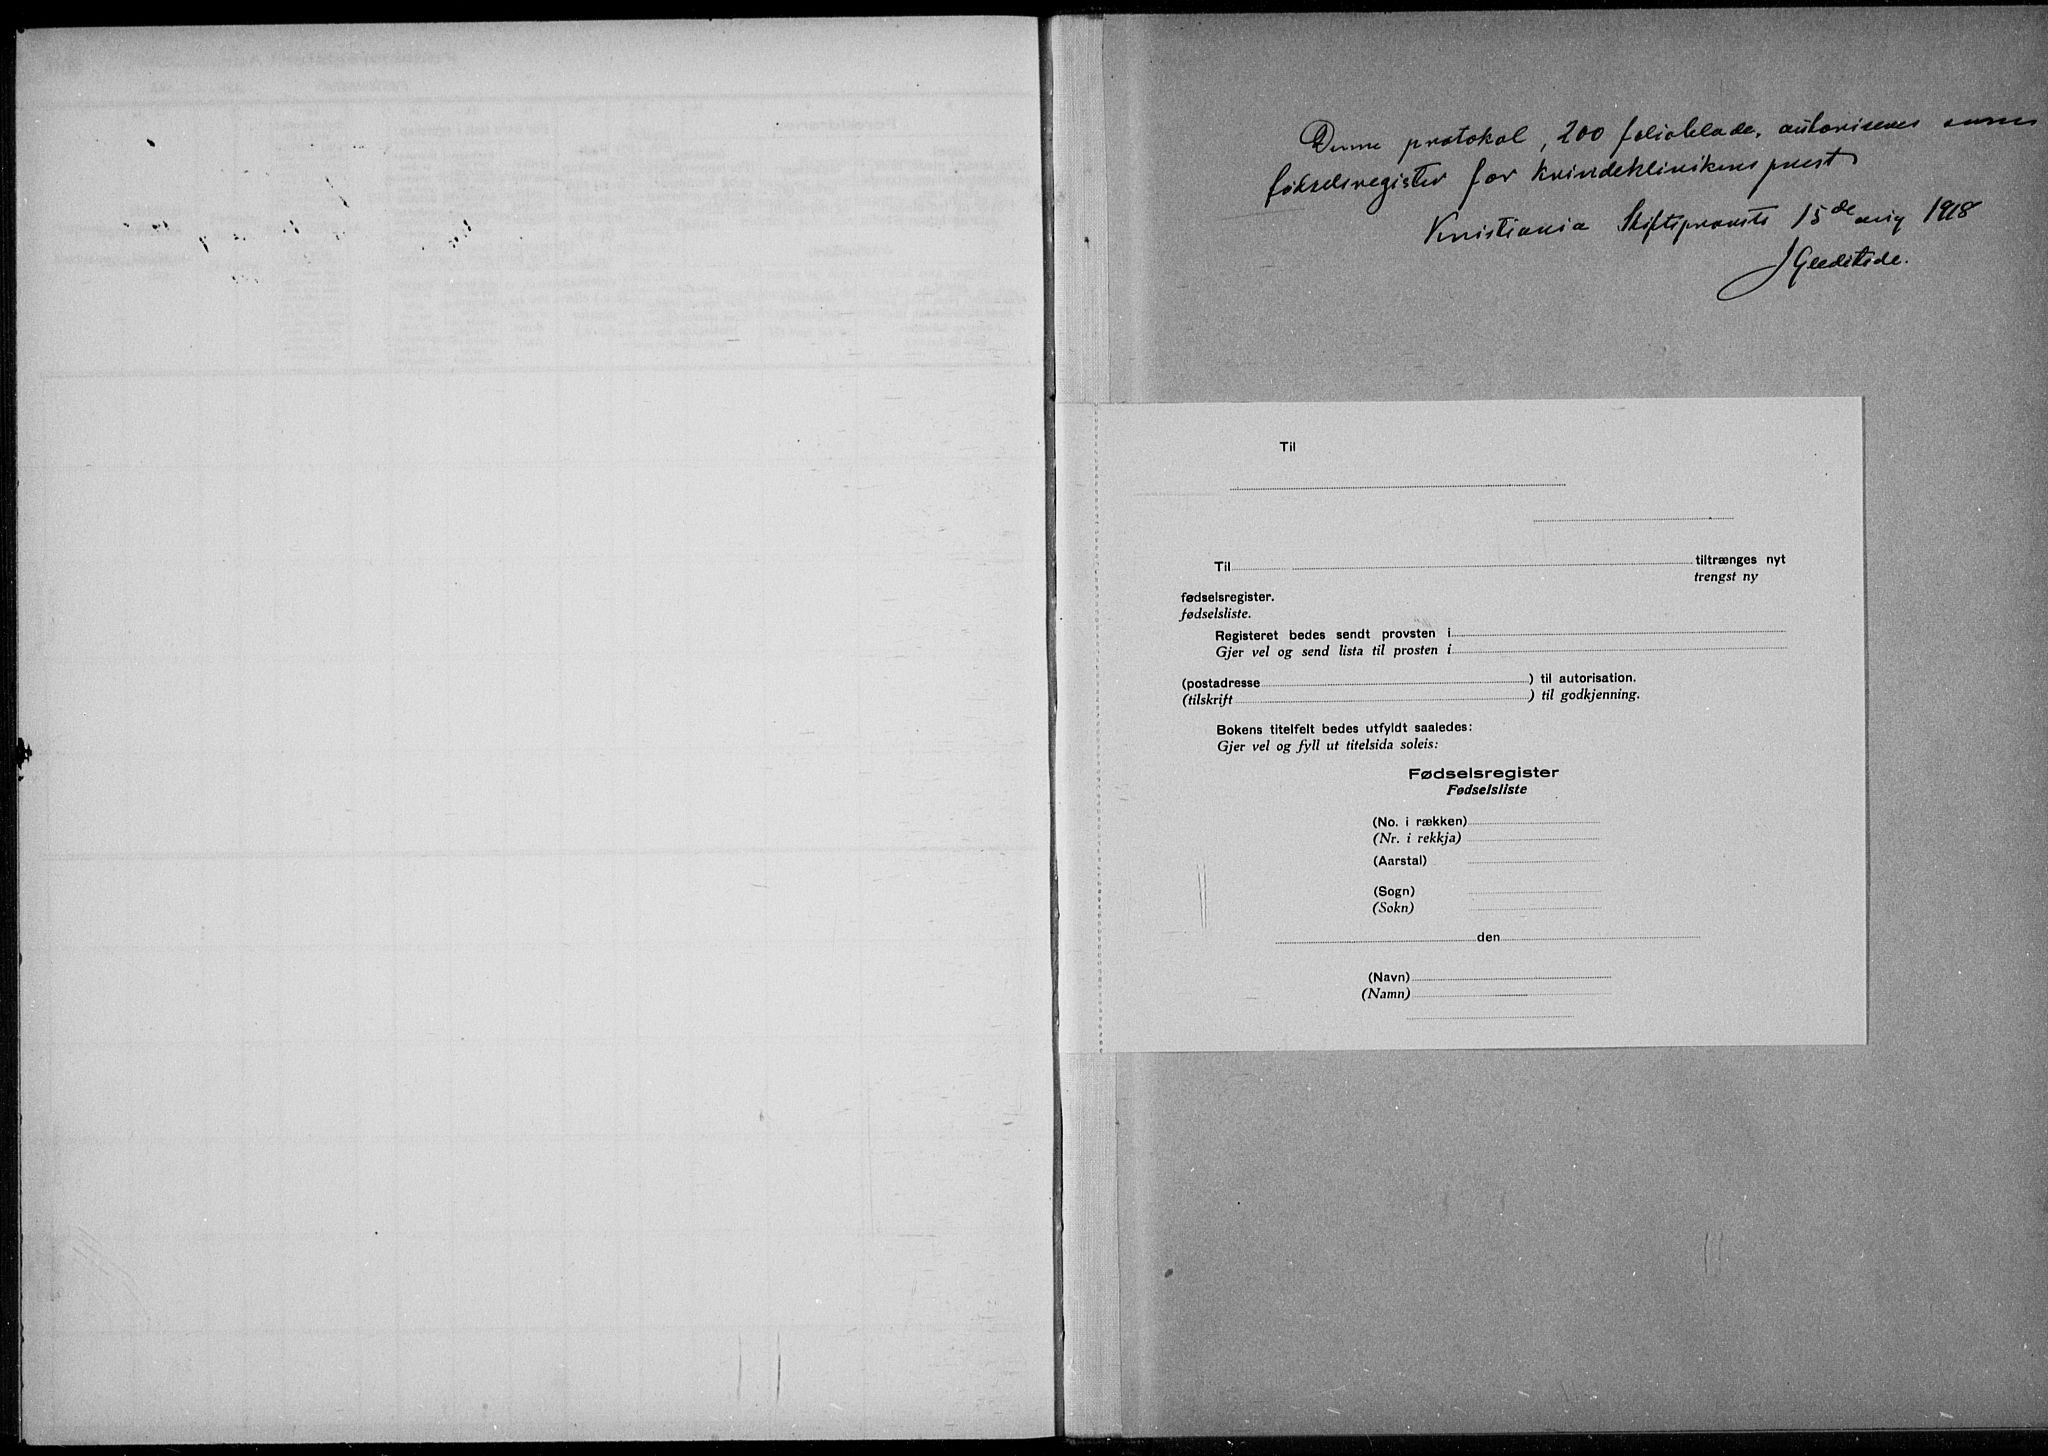 Denne protokol, 200 folioblade, autoriseres som
fødselsregister for Kvindeklinikens prest
Kristiania Stiftsprovsti 15de aug 1918
J Gleditsch.
Til
Til tiltrænges nyt
trengst ny
fødselsregister.
fødselsliste.
Registeret bedes sendt provsten i
Gjer vel og send lista til prosten i
(postadresse ) til autorisation.
(tilskrift ) til godkjenning.
Bokens titelfelt bedes utfyldt saaledes:
Gjer vel og fyll ut titelsida soleis:
Fødselsregister
Fødselsliste
(No. i rækken)
(Nr. i rekkja)
(Aarstal)
(Sogn)
(Sokn)
den
(Navn)
(Namn)